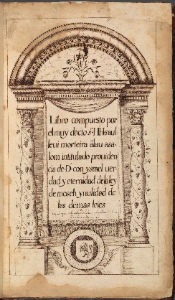 Libro compuesto por
el muy docto
levi morteira
intitulado prouiden
cia de D. con ysrael uer
dad y eternidad de la ley
de moseh y nulidad de
las demas leies